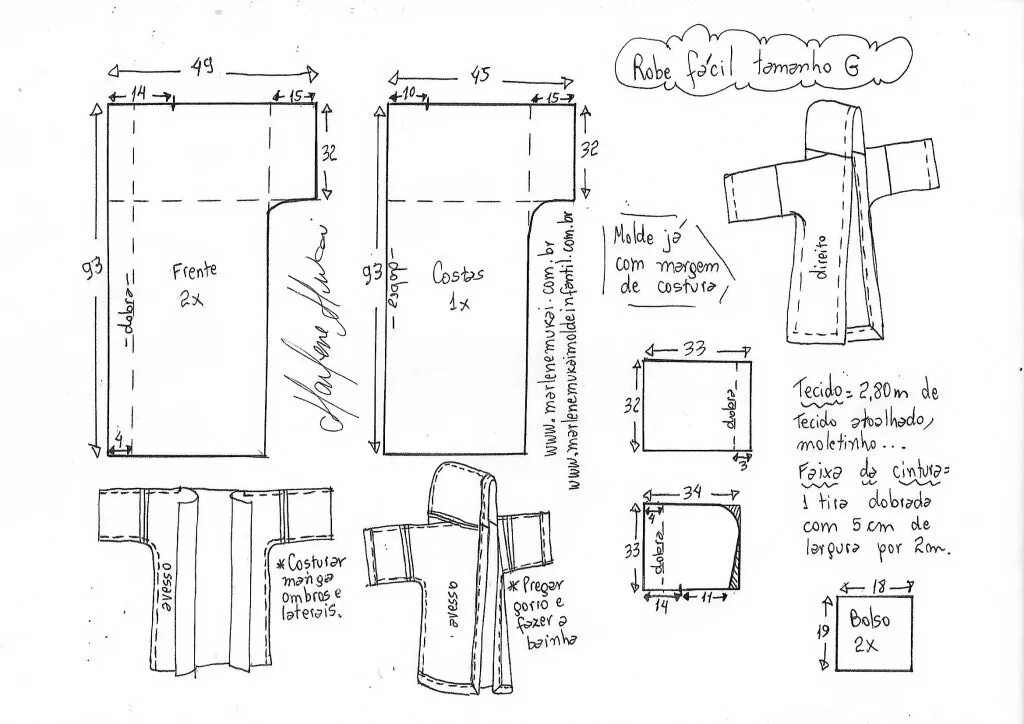 Robe fácil tamanho G
49
14
15
32
93
Frente
2x
-dobra-
4
45
10
15
32
93
-dobra-
Costas
1x
www.marlenemukai.com.br
www.marlenemukaimoldeinfantil.com.br
Marlene Mukai
Molde já
com margem
de costura
direito
33
32
dobra
3
34
4
33
dobra
14
11
Tecido= 2,80m de
Tecido atoalhado,
moletinho...
Faixa da cintura=
1 tira dobrada
com 5 cm de
largura por 2m.
18
19
Bolso
2x
avesso
*Costurar
manga
ombros e
laterais.
avesso.
*Pregar
gorro e
fazer a
bainha